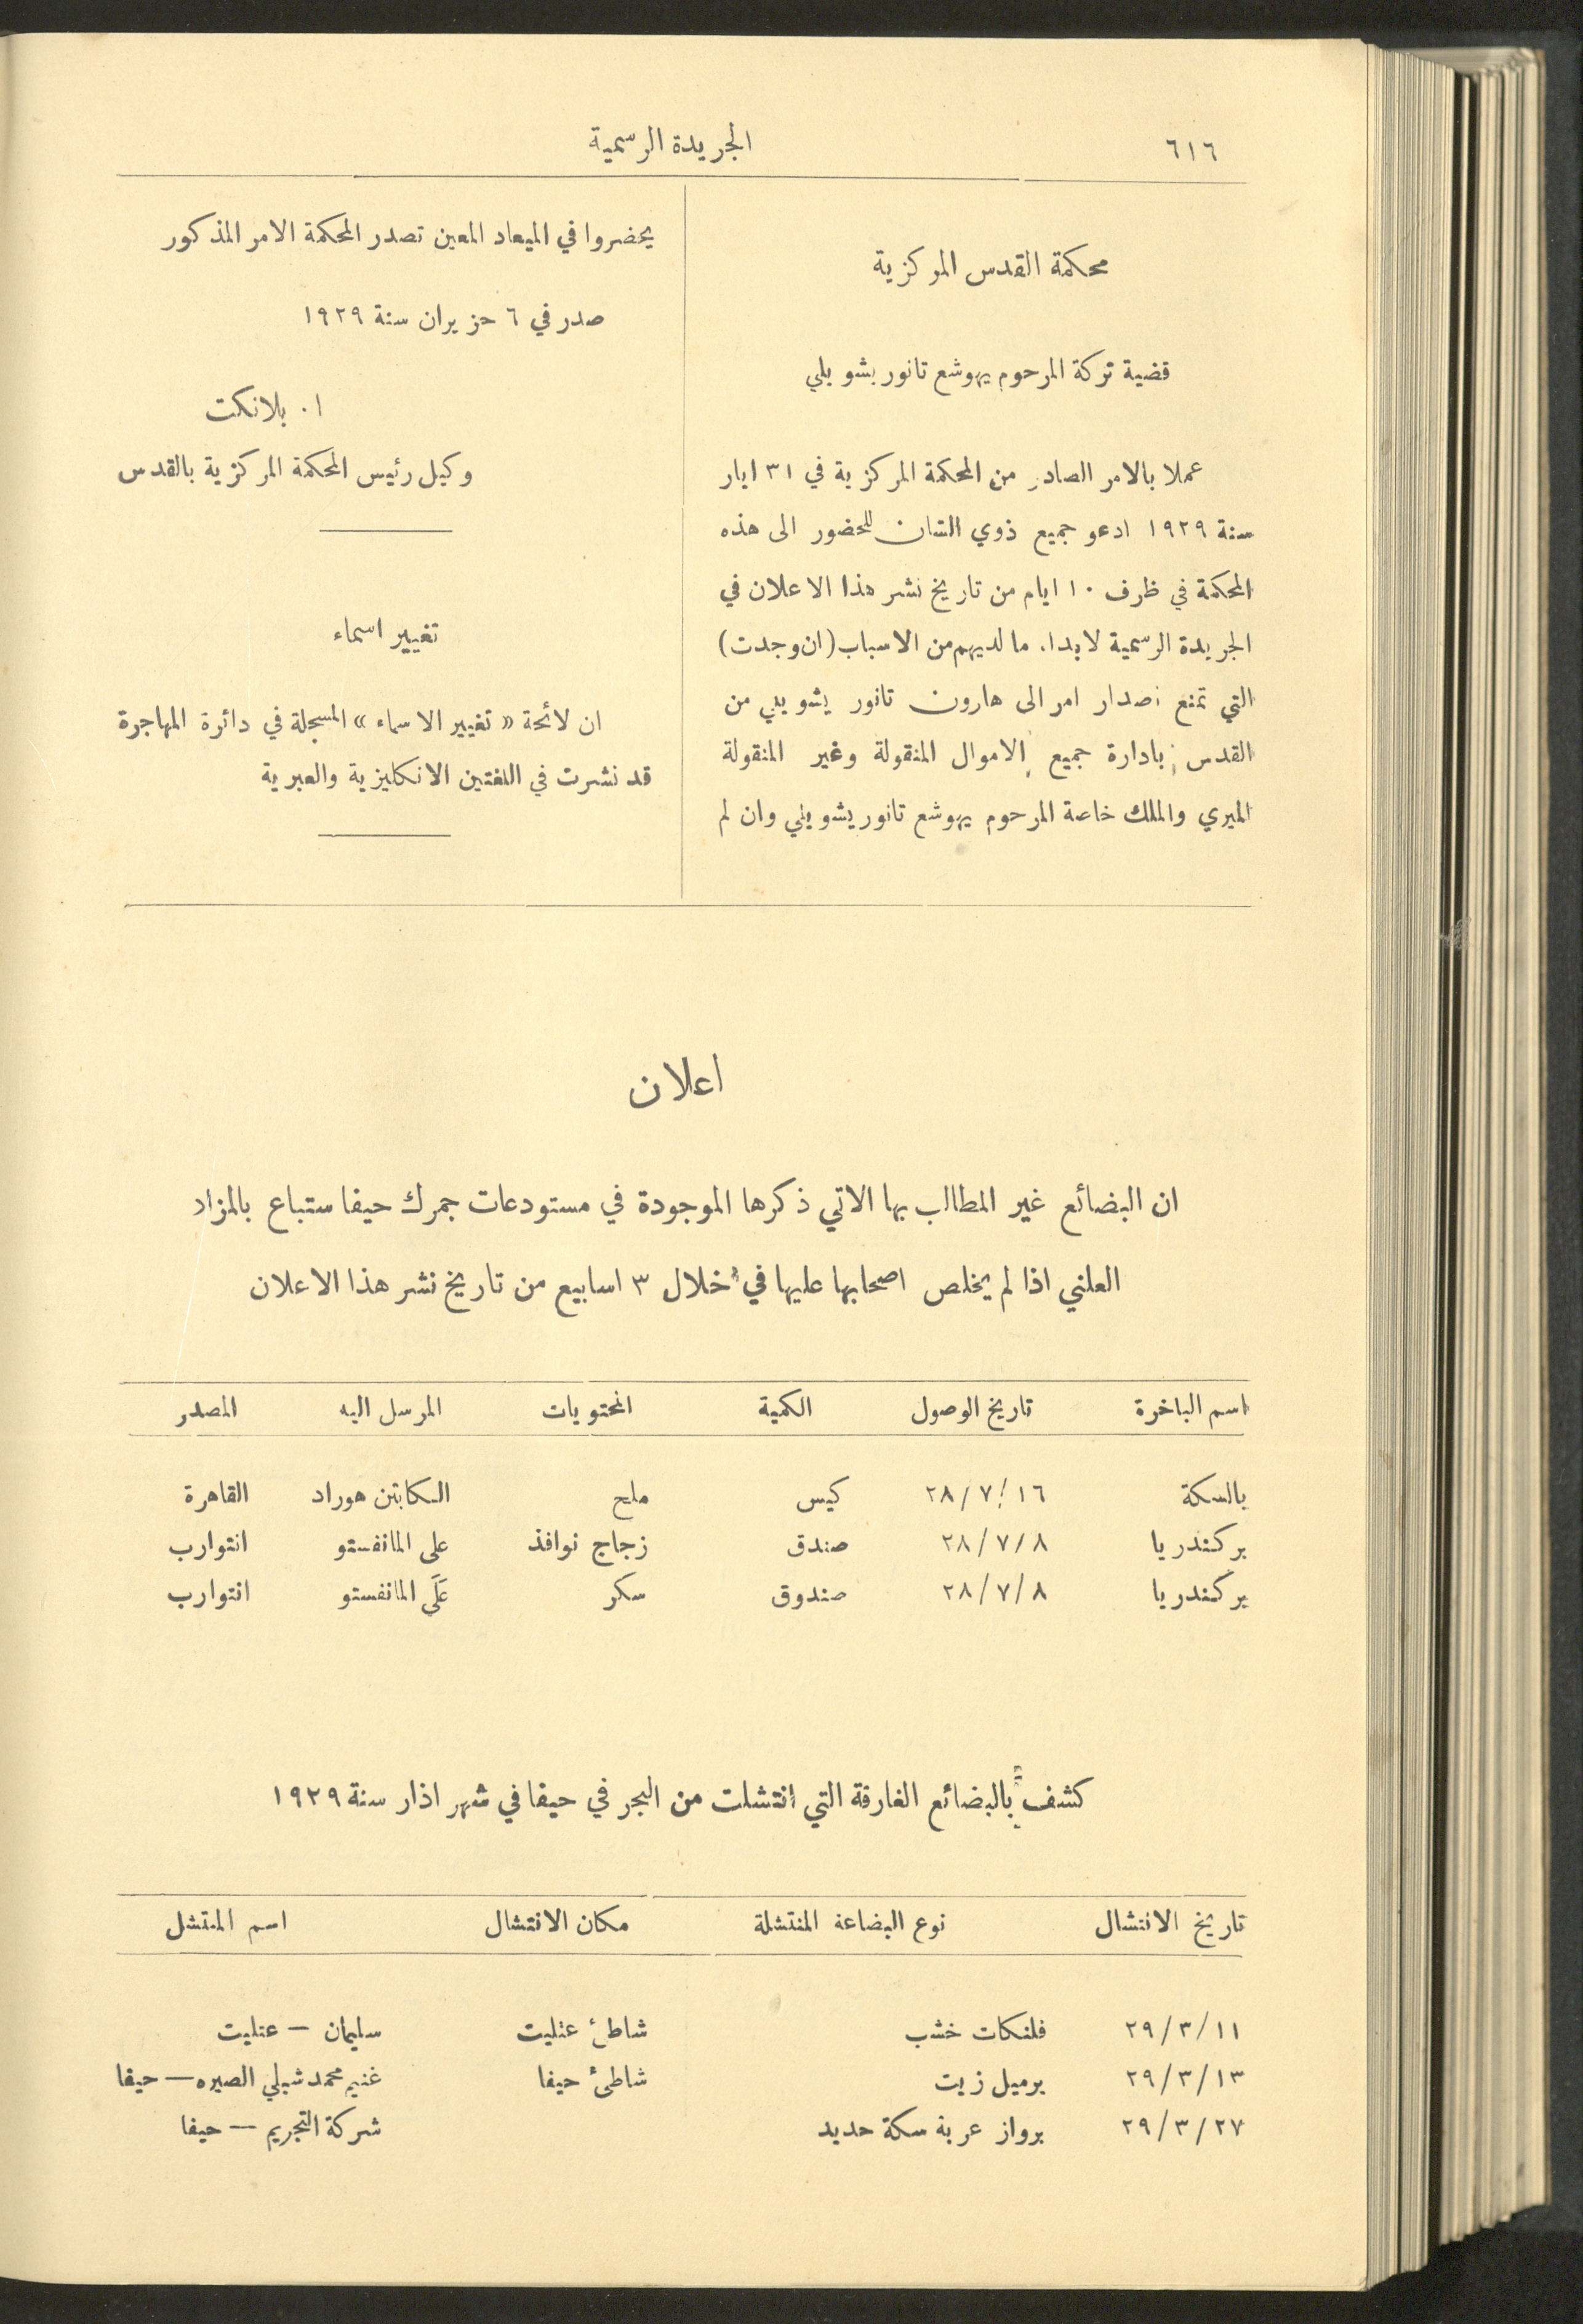 ٦١٦
الجريدة الرسمية
محكمة القدس المركزية
قضية تركة المرحوم يهوشع تانور يشويلي
عملا بالامر الصادر من المحكمة المركزية في ٣١ ايار
سنة ١٩٢٩ ادعو جميع ذوي الشان للحضور الى هذه
المحكمة في ظرف ١٠ ايام من تاريخ نشر هذا الاعلان في
الجريدة الرسمية لابداء ما لديهم من الاسباب (ان وجدت)
التي تمنع اصدار امر الى هارون تانور يشويلي من
القدس بادارة جميع الاموال المنقولة وغير المنقولة
الميري والملك خاصة المرحوم يهوشع تانور يشويلي وان لم
يحضروا في الميعاد المعين تصدر المحكمة الامر المذكور
صدر في ٦ حزيران سنة ١٩٢٩
ا. بلانكت
وكيل رئيس المحكمة المركزية بالقدس
تغيير اسماء
ان لائحة «تغيير الاسماء» المسجلة في دائرة المهاجرة
قد نشرت في اللغتين الانكليزية والعبرية
اعلان
ان البضائع غير المطالب بها الاتي ذكرها الموجودة في مستودعات جمرك حيفا ستباع بالمزاد
العلني اذا لم يخلص اصحابها عليها في خلال ٣ اسابيع من تاريخ نشر هذا الاعلان
اسم الباخرة تاريخ الوصول الكمية المحتويات المرسل اليه المصدر
بالسكة ١٦/٧/٢٨ كيس ملح الكابتن هوراد القاهرة
بركندريا ٨/٧/٢٨ صندق زجاج نوافذ على المانفستو انتوارب
بركندريا ٨/٧/٢٨ صندوق سكر على المانفستو انتوارب
كشف بالبضائع الغارقة التي انتشلت من البحر في حيفا في شهر اذار سنة ١٩٢٩
تاريخ الانتشال نوع البضاعة المنتشلة مكان الانتشال اسم المنتشل
١١/٣/٢٩ فلنكات خشب شاطئ عتليت سليمان — عتليت
١٣/٣/٢٩ برميل زيت شاطئ حيفا غنيم محمد شبلي الصيره — حيفا
٢٧/٣/٢٩ برواز عربة سكة حديد شركة التجريم — حيفا